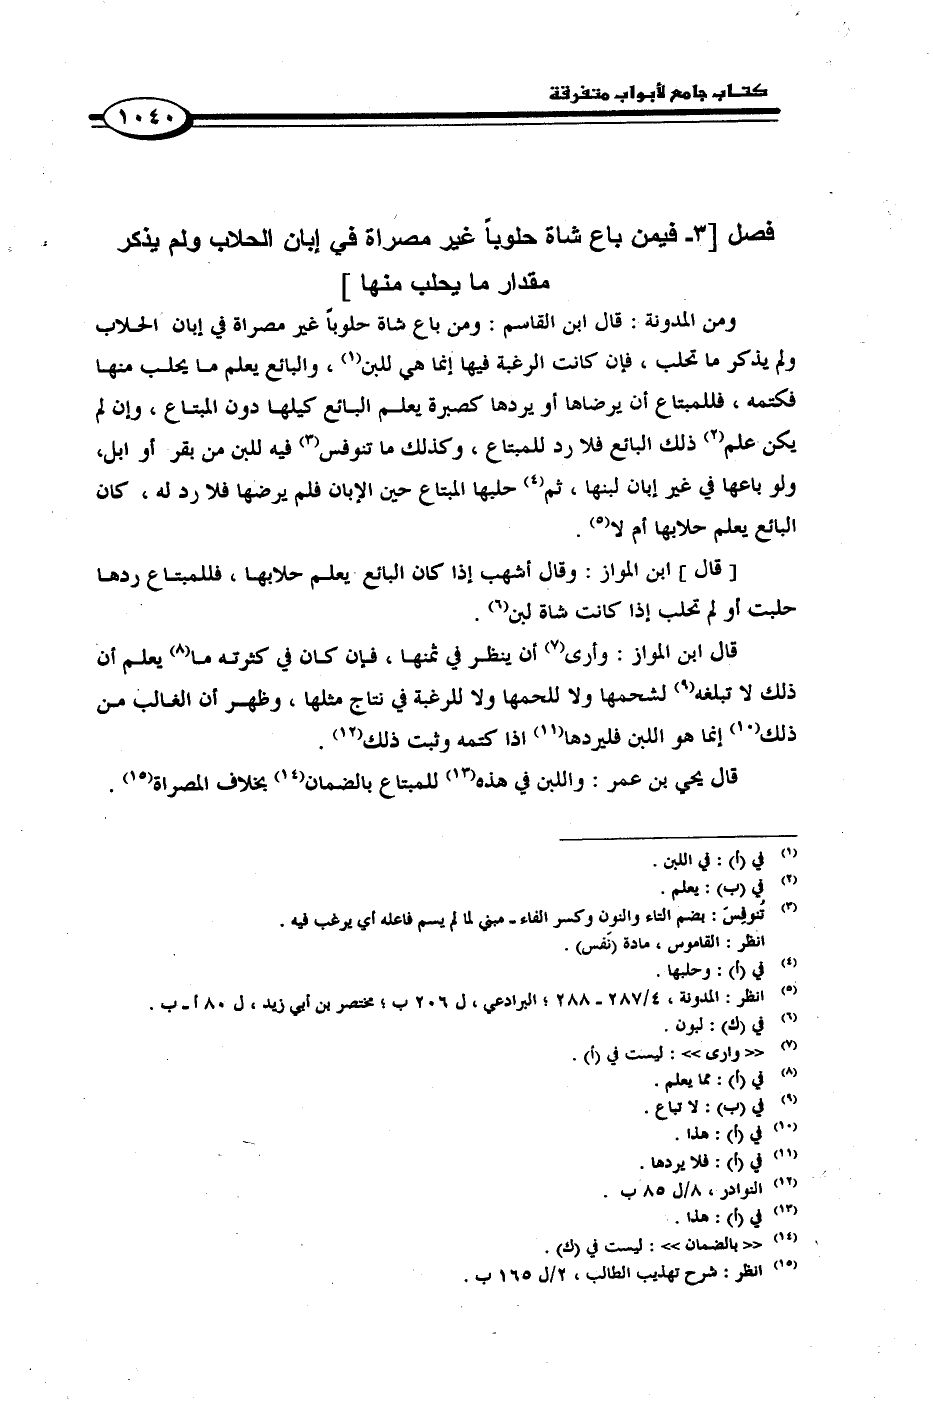 كتاب جامع لأبواب متفرقة
١٠٤٠
فصل [٣ـ فيمن باع شاة حلوباً غير مصراة في إبان الحلاب ولم يذكر
مقدار ما يحلب منها ]
ومن المدونة : قال ابن القاسم : ومن باع شاة حلوباً غير مصراة في إبان الحلاب
ولم يذكر ما تحلب ، فإن كانت الرغبة فيها إنما هي للبن(١) ، والبائع يعلم ما يحلب منها
فكتمه ، فللمبتاع أن يرضاها أو يردها كصبرة يعلم البائع كيلها دون المبتاع ، وإن لم
يكن علم(٢) ذلك البائع فلا رد للمبتاع ، وكذلك ما تنوفس(٣) فيه للبن من بقر أو ابل،
ولو باعها في غير إبان لبنها ، ثم(٤) حلبها المبتاع حين الإبان فلم يرضها فلا رد له ، كان
البائع يعلم حلابها أم لا(٥) .
[ قال ] ابن المواز : وقال أشهب إذا كان البائع يعلم حلابها ، فللمبتاع ردها
حلبت أو لم تحلب إذا كانت شاة لبن(٦) .
قال ابن المواز : وأرى(٧) أن ينظر في ثمنها ، فإن كان في كثرته ما(٨) يعلم أن
ذلك لا تبلغه(٩) لشحمها ولا للحمها ولا للرغبة في نتاج مثلها ، وظهر أن الغالب من
ذلك(١٠) إنما هو اللبن فليردها(١١) اذا كتمه وثبت ذلك(١٢) .
قال يحي بن عمر : واللبن في هذه(١٣) للمبتاع بالضمان(١٤) بخلاف المصراة(١٥) .
(١) في (أ) : في اللبن .
(٢) في (ب) : يعلم .
(٣) تُنوفِسَ : بضم التاء والنون وكسر الفاء ـ مبني لما لم يسم فاعله أي يرغب فيه .
انظر : القاموس ، مادة (نَفس) .
(٤) في (أ) : وحلبها .
(٥) انظر : المدونة ، ٢٨٧/٤ ـ ٢٨٨ ؛ البرادعي ، ل ٢٠٦ ب ؛ مختصر بن أبي زيد ، ل ٨٠ أ ـ ب .
(٦) في (ك) : لبون .
(٧) << وارى >> : ليست في (أ) .
(٨) في (أ) : مما يعلم .
(٩) في (ب) : لا تباع .
(١٠) في (أ) : هذا .
(١١) في (أ) : فلا يردها .
(١٢) النوادر ، ٨/ل ٨٥ ب .
(١٣) في (أ) : هذا .
(١٤) << بالضمان >> : ليست في (ك) .
(١٥) انظر : شرح تهذيب الطالب ، ٢/ل ١٦٥ ب .